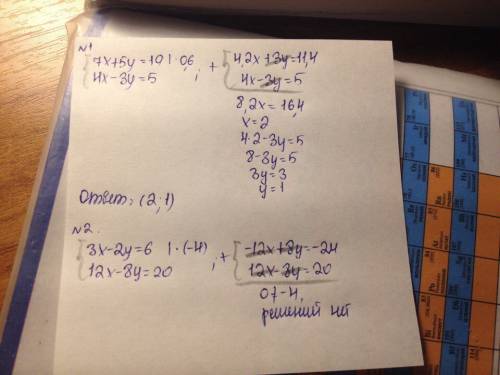 №1
7x+5y=19 | · 0,6
4x-3y=5 ; + 4,2x+3y=11,4
4x-3y=5
8,2x=16,4
x=2
4·2-3y=5
8-3y=5
3y=3
y=1
Ответ: (2;1)
№2.
3x-2y=6 | · (-4)
12x-8y=20 ; + -12x+8y=-24
12x-8y=20
0≠-4,
решений нет